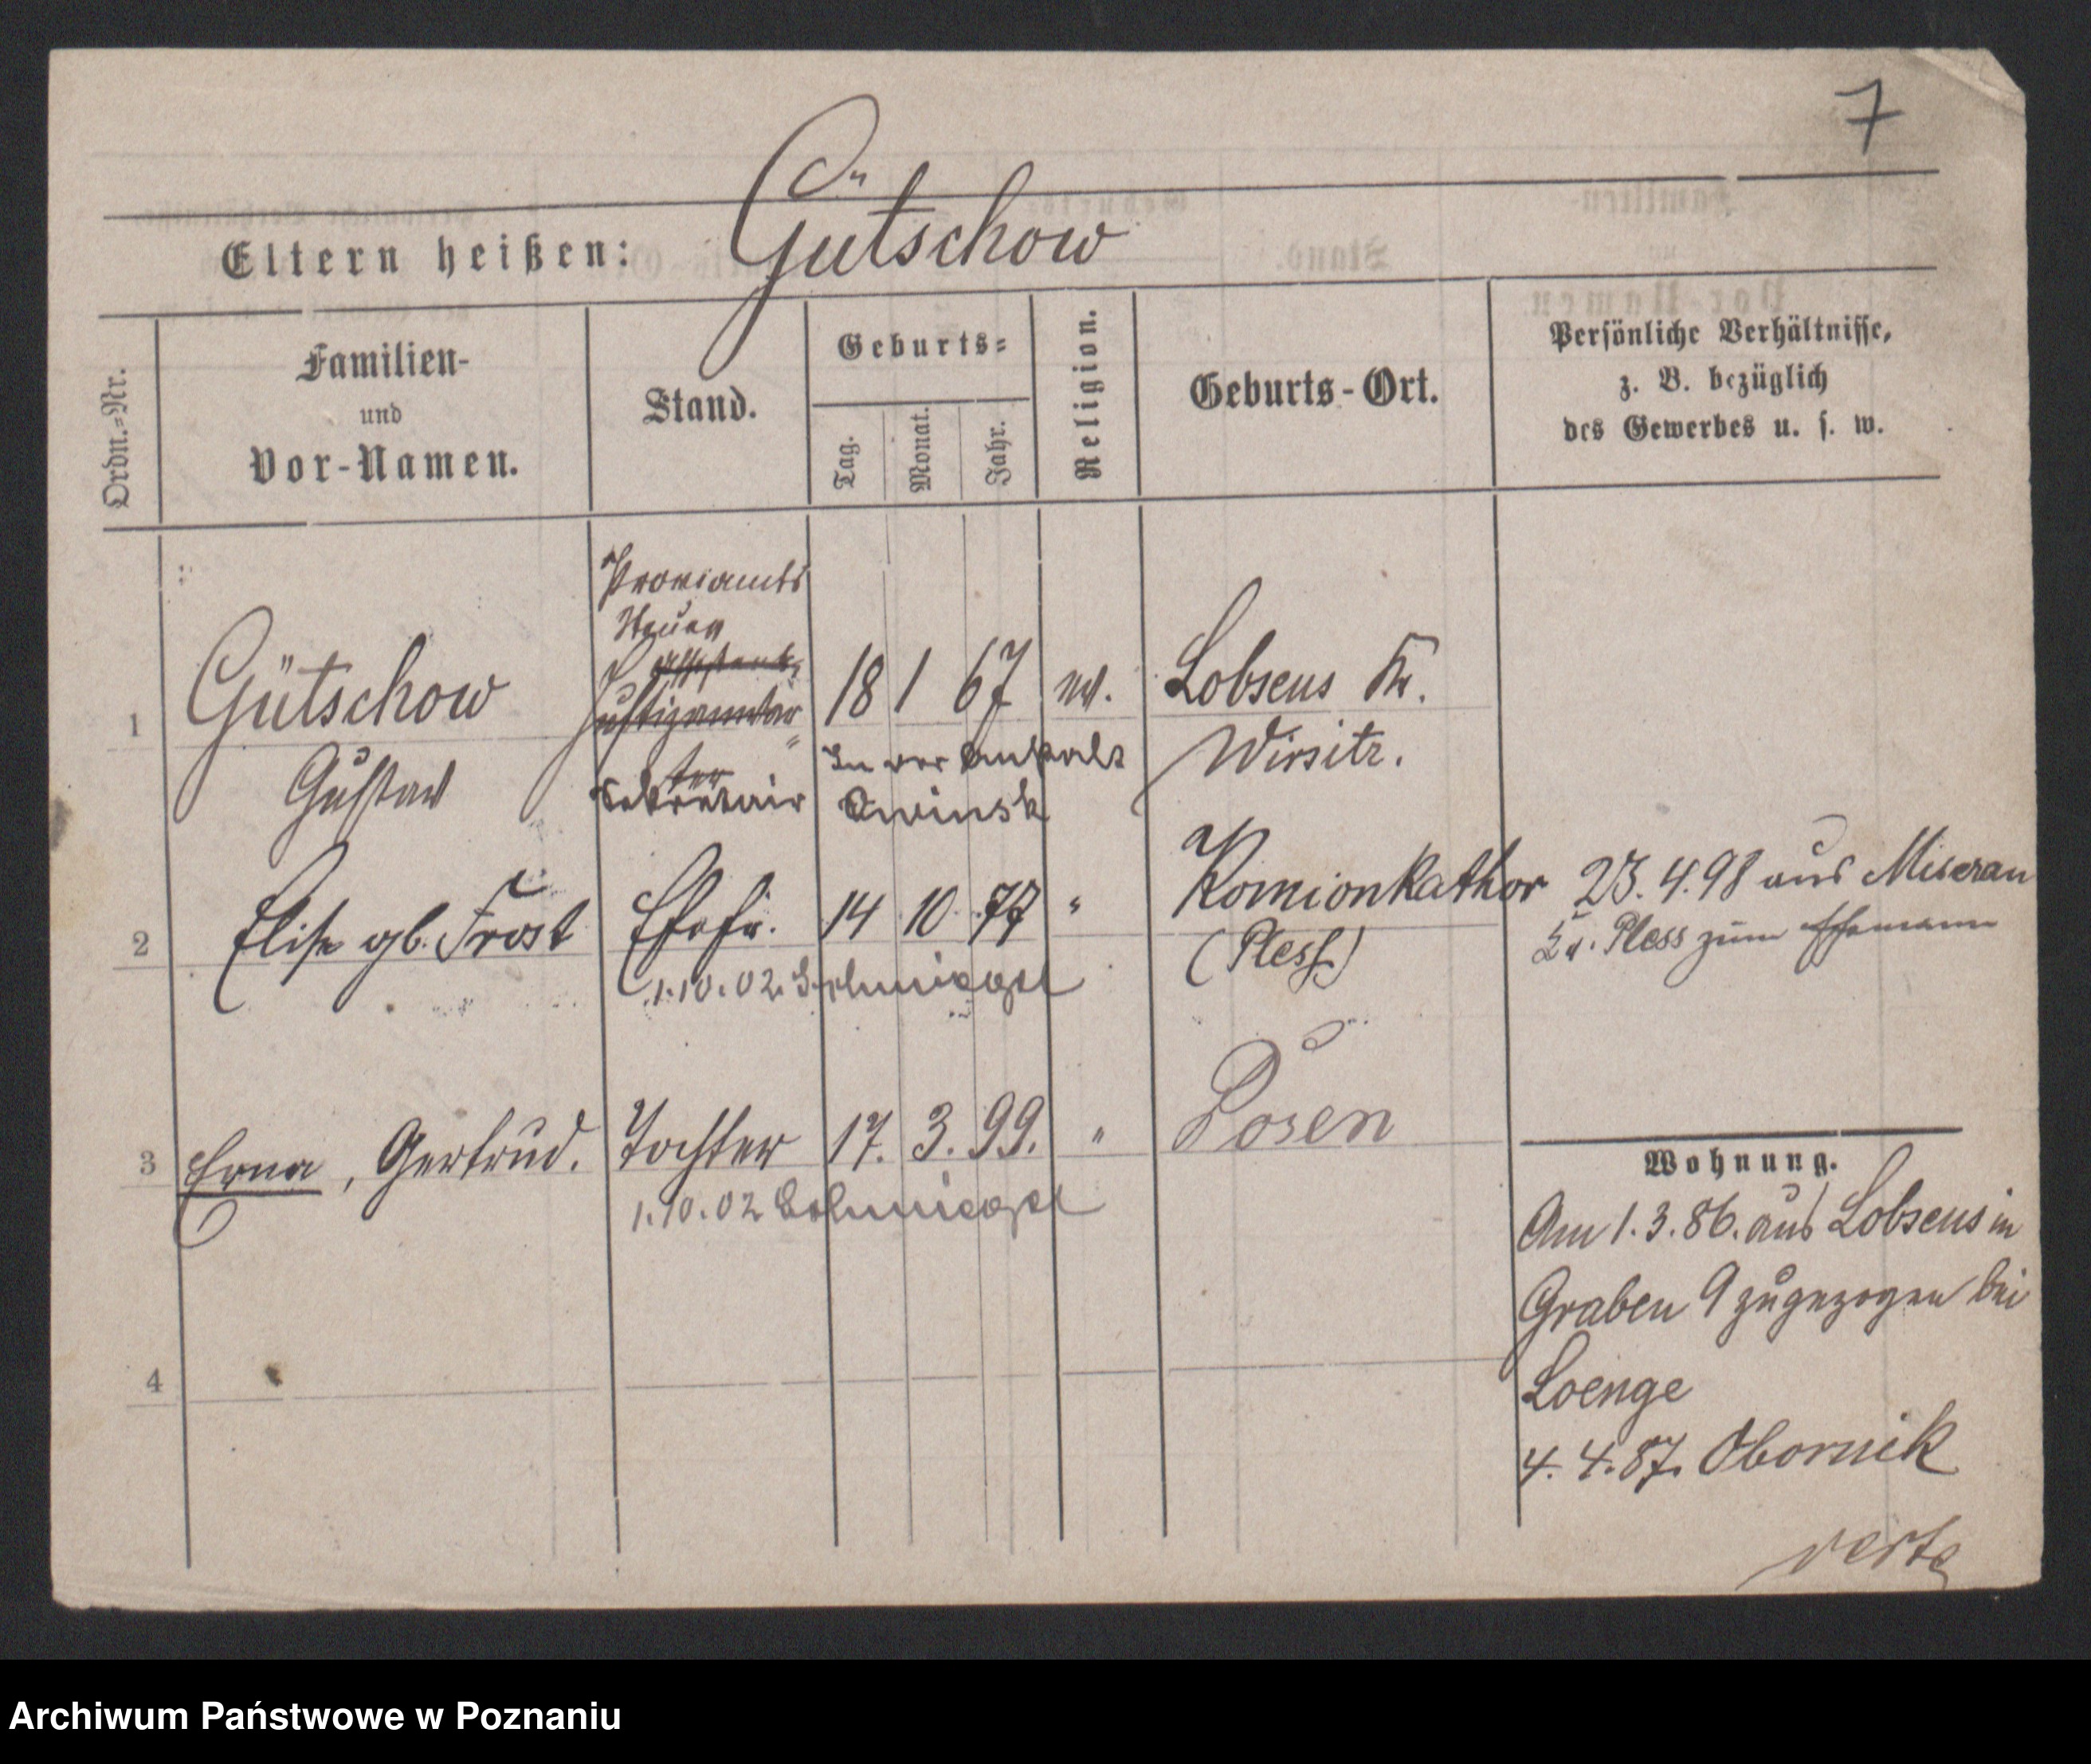 7
Eltern heißen: Gütschow
Ordn.-Nr.
Familien-
und
Vor-Namen.
Stand.
Geburts-
Tag.
Monat.
Jahr.
Religion.
Geburts-Ort.
Persönliche Verhältnisse,
z. B. bezüglich
des Gewerbes u. s. w.
Proviamts
1 Gütschow 18 1 67 ev. Lobsens Kr.
Gustav Wirsitz.
Sekretair Owinsk
2 Elise gb. Frost Ehefr. 14 10 77 " Komionkathor 23.4.98 aus Miseran
(Pless) Kr. Pless zum Ehemann
1.10.02 Schmiegel
3 Erna, Gertrud. Tochter 17. 3. 99. " Posen
1.10.02 Schmiegel
Wohnung.
Am 1.3.86. aus Lobsens in
Graben 9 zugezogen bei
Loenge
4
4.4.87. Obornik